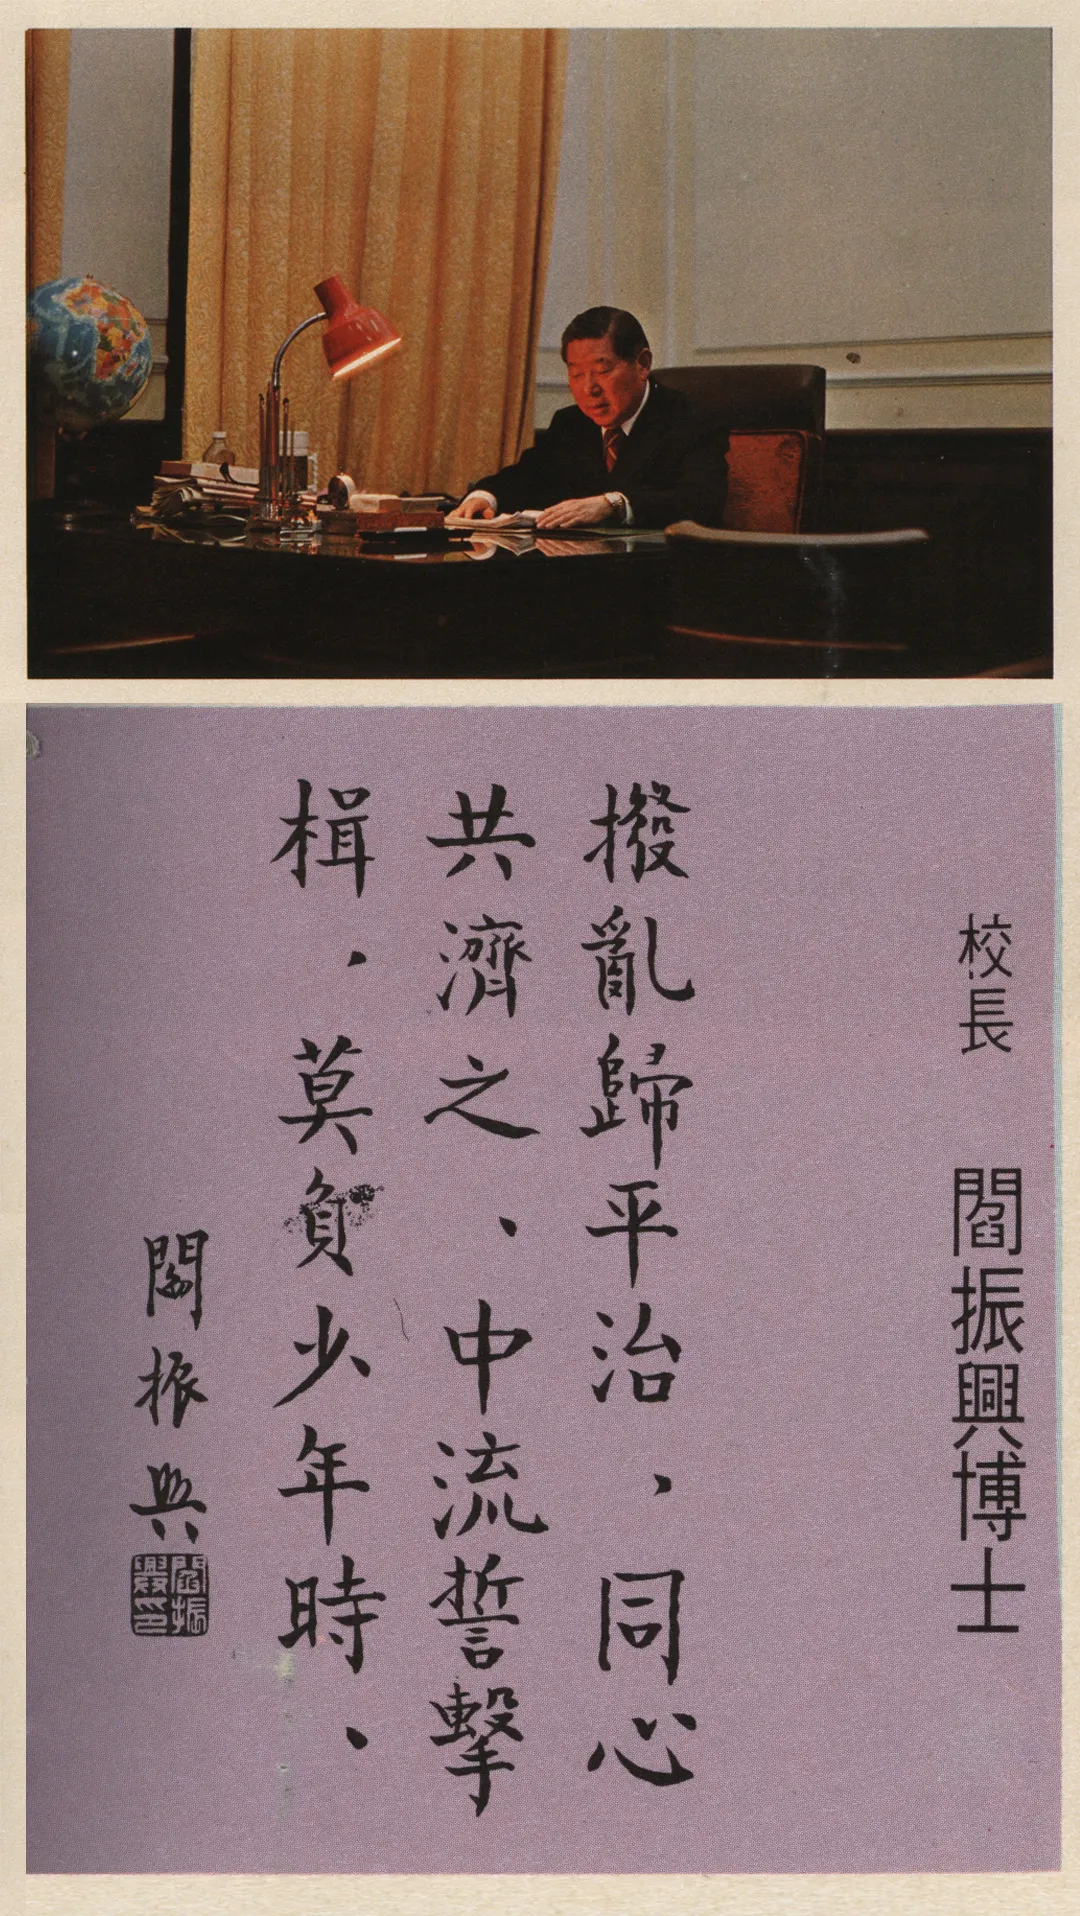 校長 閻振興博士
撥亂歸平治，同心
共濟之、中流誓擊
楫，莫負少年時、
閻振興
閻振興印